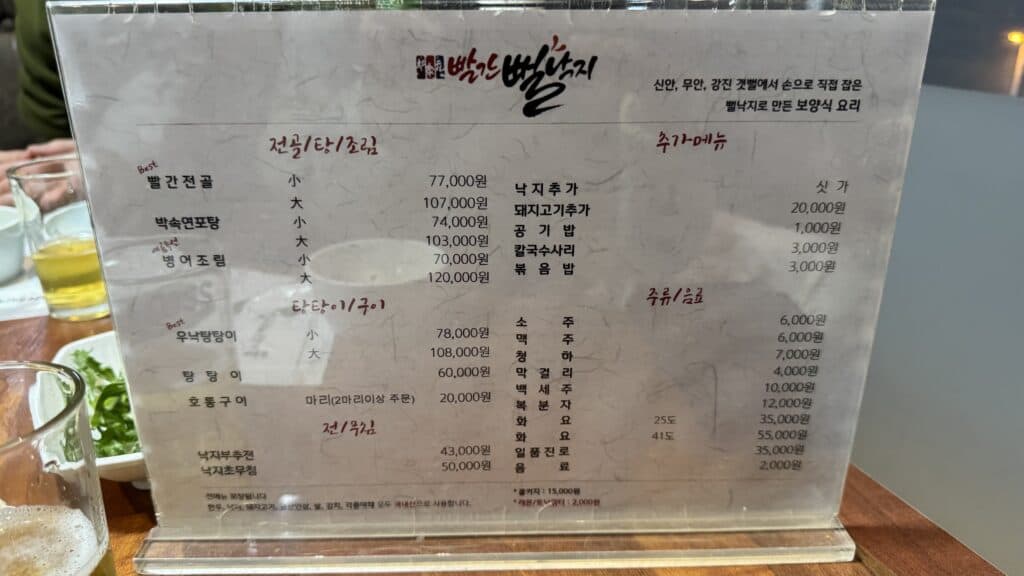 빨간뻘낙지
신안, 무안, 강진 갯뻘에서 손으로 직접 잡은
뻘낙지로 만든 보양식 요리
전골/탕/조림
Best
빨간전골 小 77,000원
大 107,000원
박속연포탕 小 74,000원
大 103,000원
병어조림 小 70,000원
大 120,000원
탕탕이/구이
Best
우낙탕탕이 小 78,000원
大 108,000원
탕탕이 60,000원
호롱구이 마리(2마리이상 주문) 20,000원
전/무침
낙지부추전 43,000원
낙지초무침 50,000원
전메뉴 포장됩니다
추가메뉴
낙지추가 싯가
돼지고기추가 20,000원
공기밥 1,000원
칼국수사리 3,000원
볶음밥 3,000원
주류/음료
소주 6,000원
맥주 6,000원
청하 7,000원
막걸리 4,000원
백세주 10,000원
복분자 12,000원
화요 25도 35,000원
화요 41도 55,000원
일품진로 35,000원
음료 2,000원
* 콜키지 : 15,000원
* 레몬/토닉워터 : 2,000원